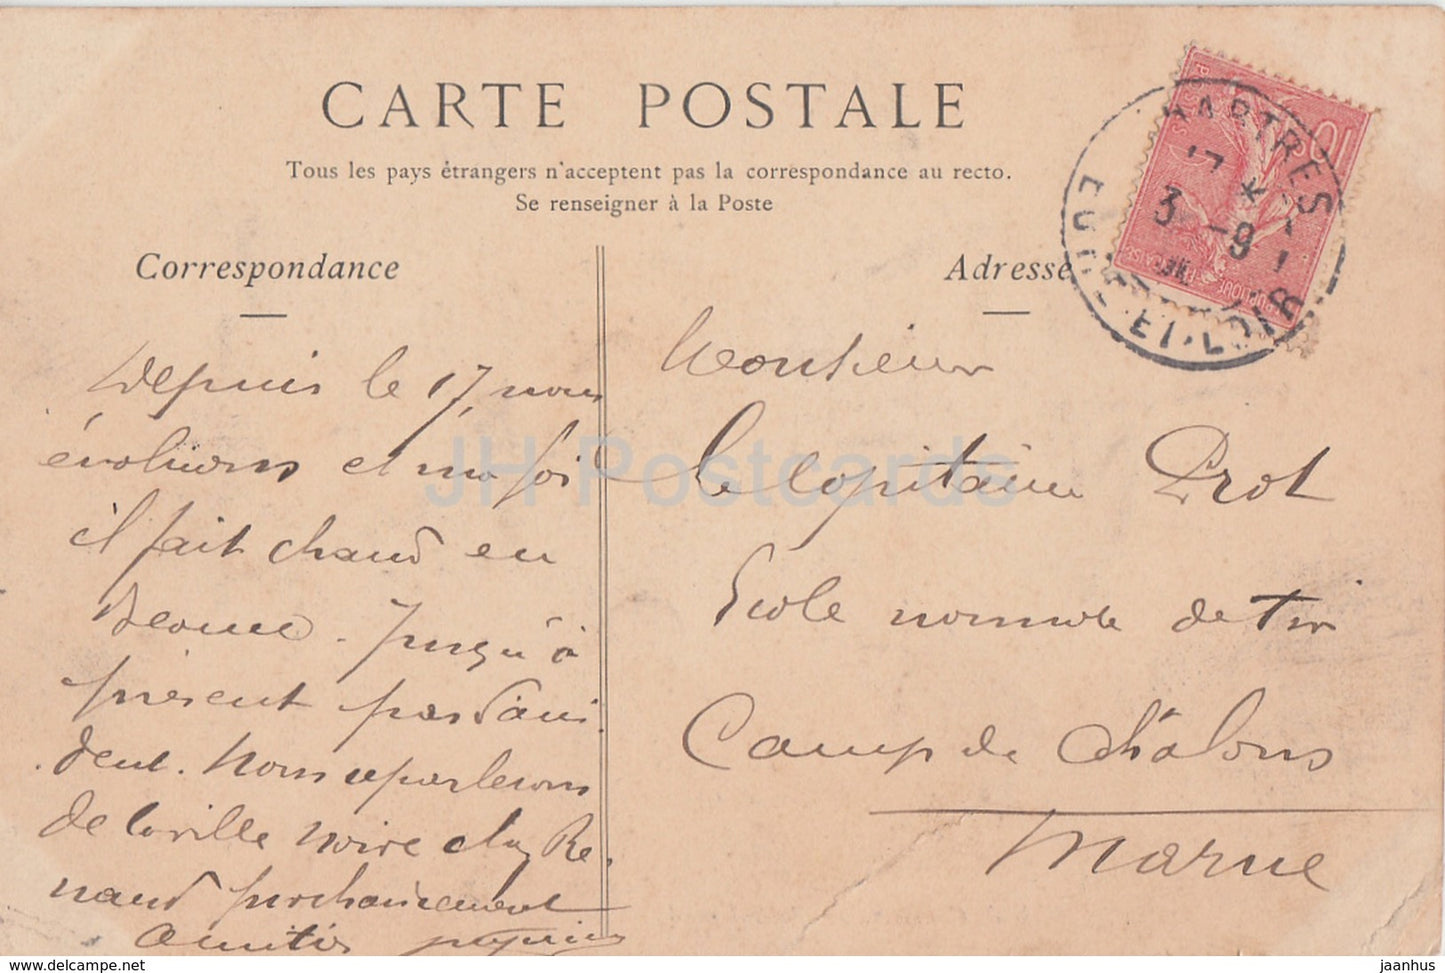 CARTE POSTALE
Tous les pays étrangers n'acceptent pas la correspondance au recto.
Se renseigner à la Poste
Correspondance
Adresse
CHARTRES
EURE-ET-LOIR
10
Depuis le 17, nous
évoluons et ma foi
il fait chaud en
Beauce. Jusqu'à
présent pas d'acci
dent. Nous reparlerons
de la ville noire chez Re
naud prochainement
Amitiés
Monsieur
le Capitaine Prot
Ecole normale de tir
Camp de Châlons
Marne
JH Postcards
delcampe.net
jaanhus